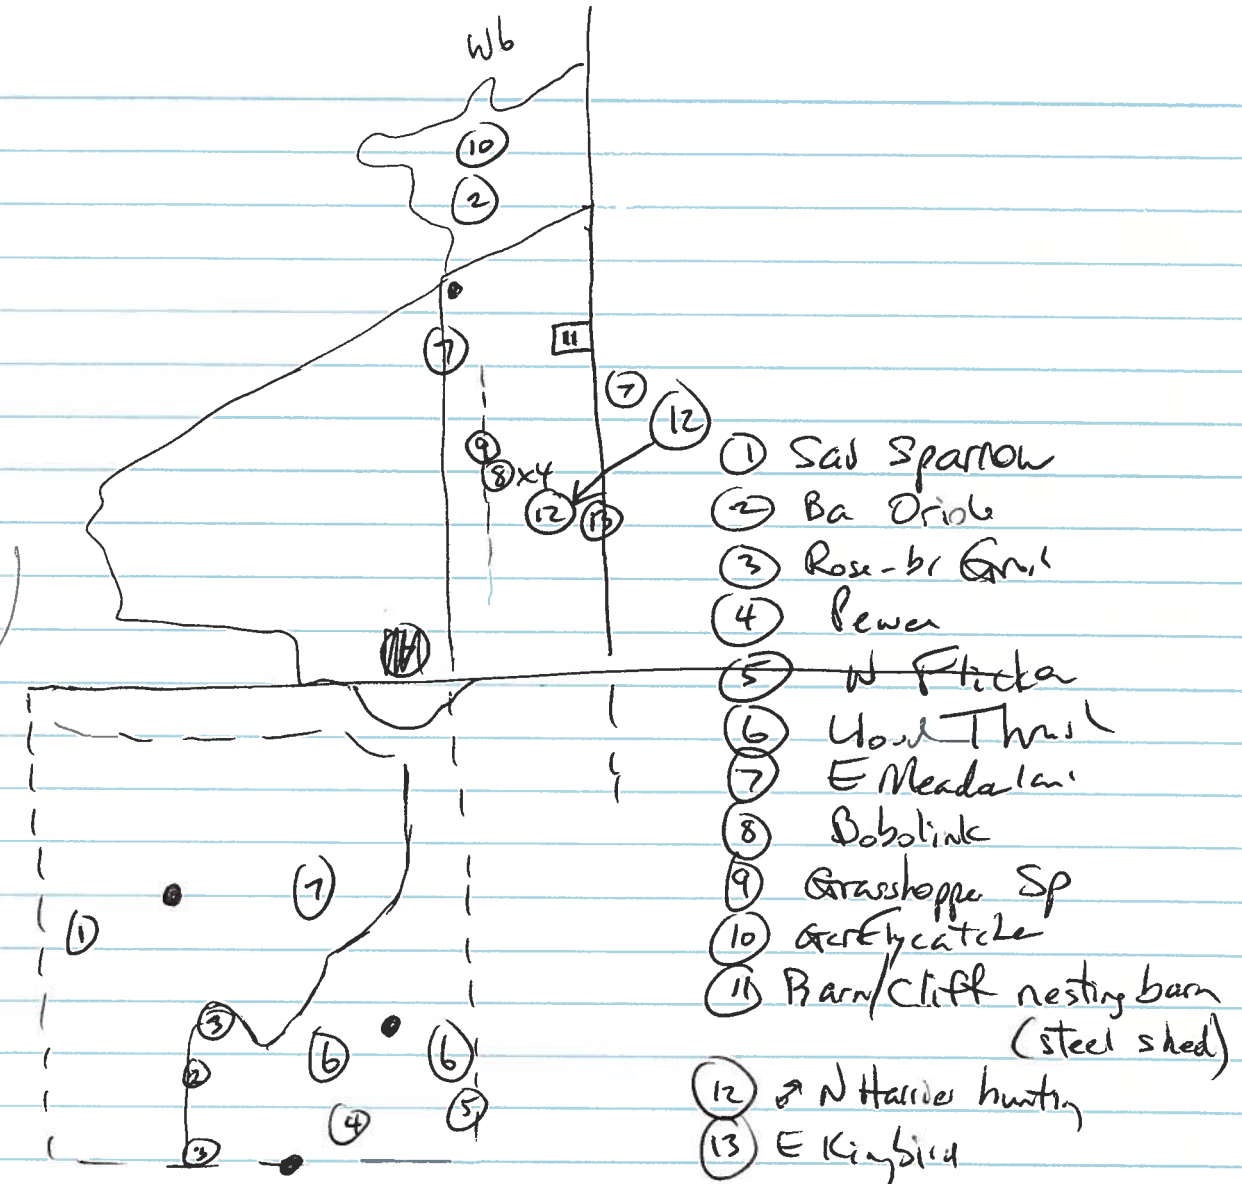 W6
10
2
7
11
7
12
9
8 x4
12
13
1 Sav Sparrow
2 Ba Oriole
3 Rose-br Grosb
4 Pewee
5 N Flicker
6 Wood Thrush
7 E Meadowlark
8 Bobolink
9 Grasshopper Sp
10 GcrFlycatcher
11 Barn/Cliff nesting barn
(steel shed)
12 ♂ N Harrier hunting
13 E Kingbird
7
1
3
6
6
2
5
4
3